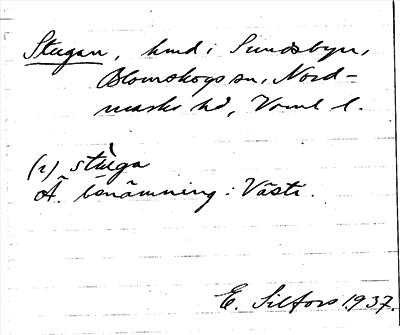 Stugan, hmd i Sundsbyn,
Blomskogs sn, Nord-
marks hd, Vrml l.
(i) stùga
Ä. benämning: Västr.
E. Silfors 1937.